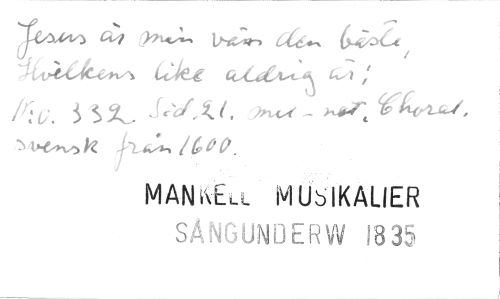 Jesus är min vän den bäste,
Hvilkens like aldrig är;
N:o. 332. Sid. 21. mel-not. Choral.
svensk från 1600.
MANKELL MUSIKALIER
SÅNGUNDERW 1835